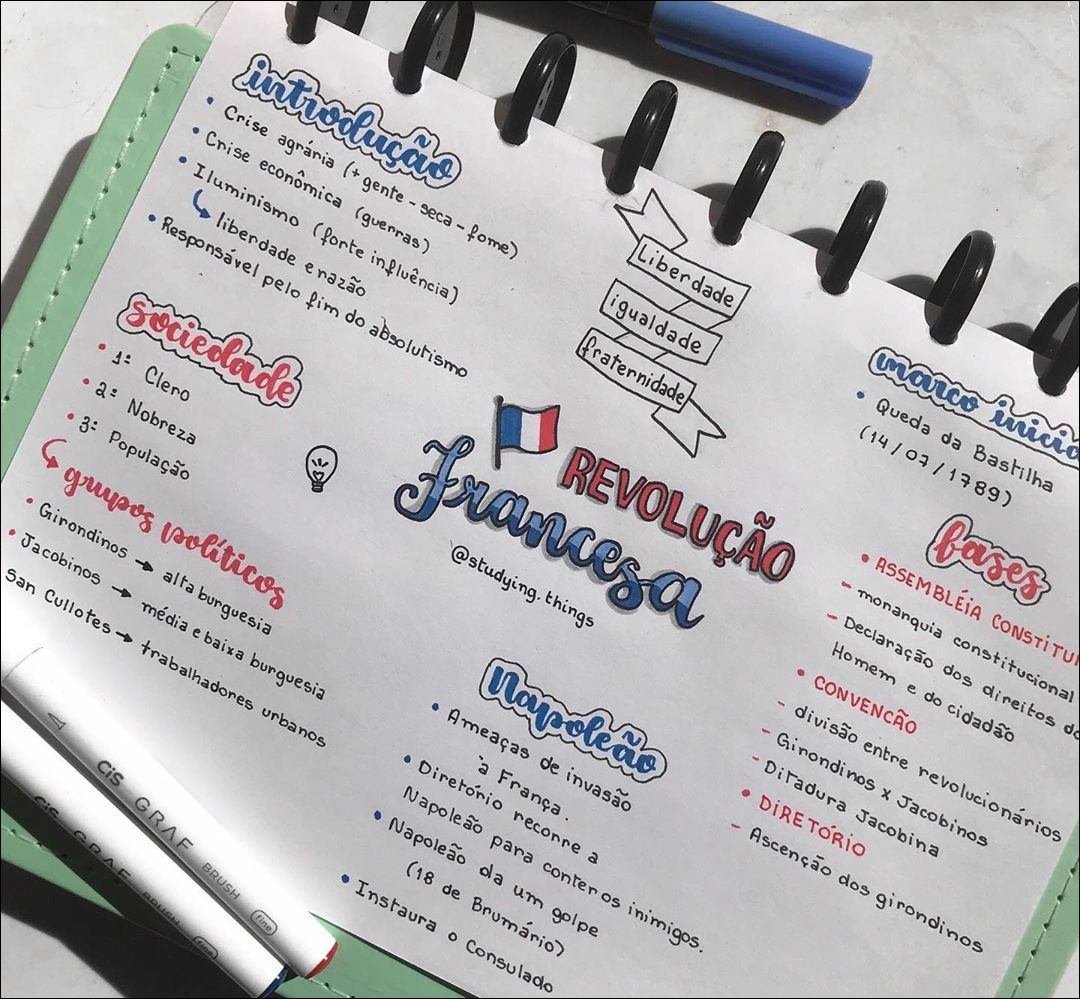 introdução
• Crise agrária (+ gente - seca - fome)
• Crise econômica (guerras)
• Iluminismo (forte influência)
↳ liberdade e razão
• Responsável pelo fim do absolutismo
sociedade
• 1º: Clero
• 2º: Nobreza
• 3º: População
↳ grupos políticos
• Girondinos → alta burguesia
• Jacobinos → média e baixa burguesia
San Cullotes → trabalhadores urbanos
Liberdade
igualdade
fraternidade
REVOLUÇÃO
francesa
@studying.things
Napoleão
• Ameaças de invasão
à França.
• Diretório recorre a
Napoleão para conter os inimigos.
• Napoleão da um golpe
(18 de Brumário)
• Instaura o Consulado
marco inicia
• Queda da Bastilha
(14/07/1789)
bases
• ASSEMBLÉIA CONSTITUI
- monarquia constitucional
- Declaração dos direitos do
Homem e do cidadão
• CONVENCÃO
- divisão entre revolucionários
- Girondinos x Jacobinos
- Ditadura Jacobina
• DIRETÓRIO
- Ascenção dos girondinos
cis GRAF BRUSH fine
cis GRAF BRUSH fine